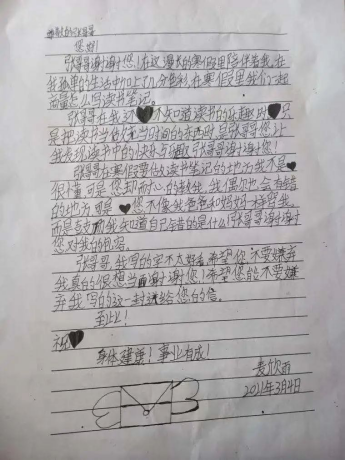 敬爱的张哥哥
您好!
张哥哥谢谢您!在这漫长的寒假里陪伴着我,在
我孤单的生活中加上了几分色彩,在寒假里我们一起
商量怎么写读书笔记。
张哥哥在我对不知道读书的乐趣时只
是把读书当做 当时间的东西时是张哥哥您让
我发现读书中的快乐与趣,张哥哥谢谢你!
张哥哥在寒假要做读书笔记的地方我不是
很懂,可是您却耐心的教我,我偶尔也会有错
的地方,可是您不像我爸爸和妈妈一样骂我。
而是 我知道自己错的是什么!张哥哥谢谢
您对我的包容。
张哥哥,我写的字不太好看希望您不要嫌弃
我真的很想当面谢谢您!希望您能不要嫌
弃我写的这一封送给您的信。
至此!
祝
身体健康!事业有成!
麦欣雨
2021年3月4日